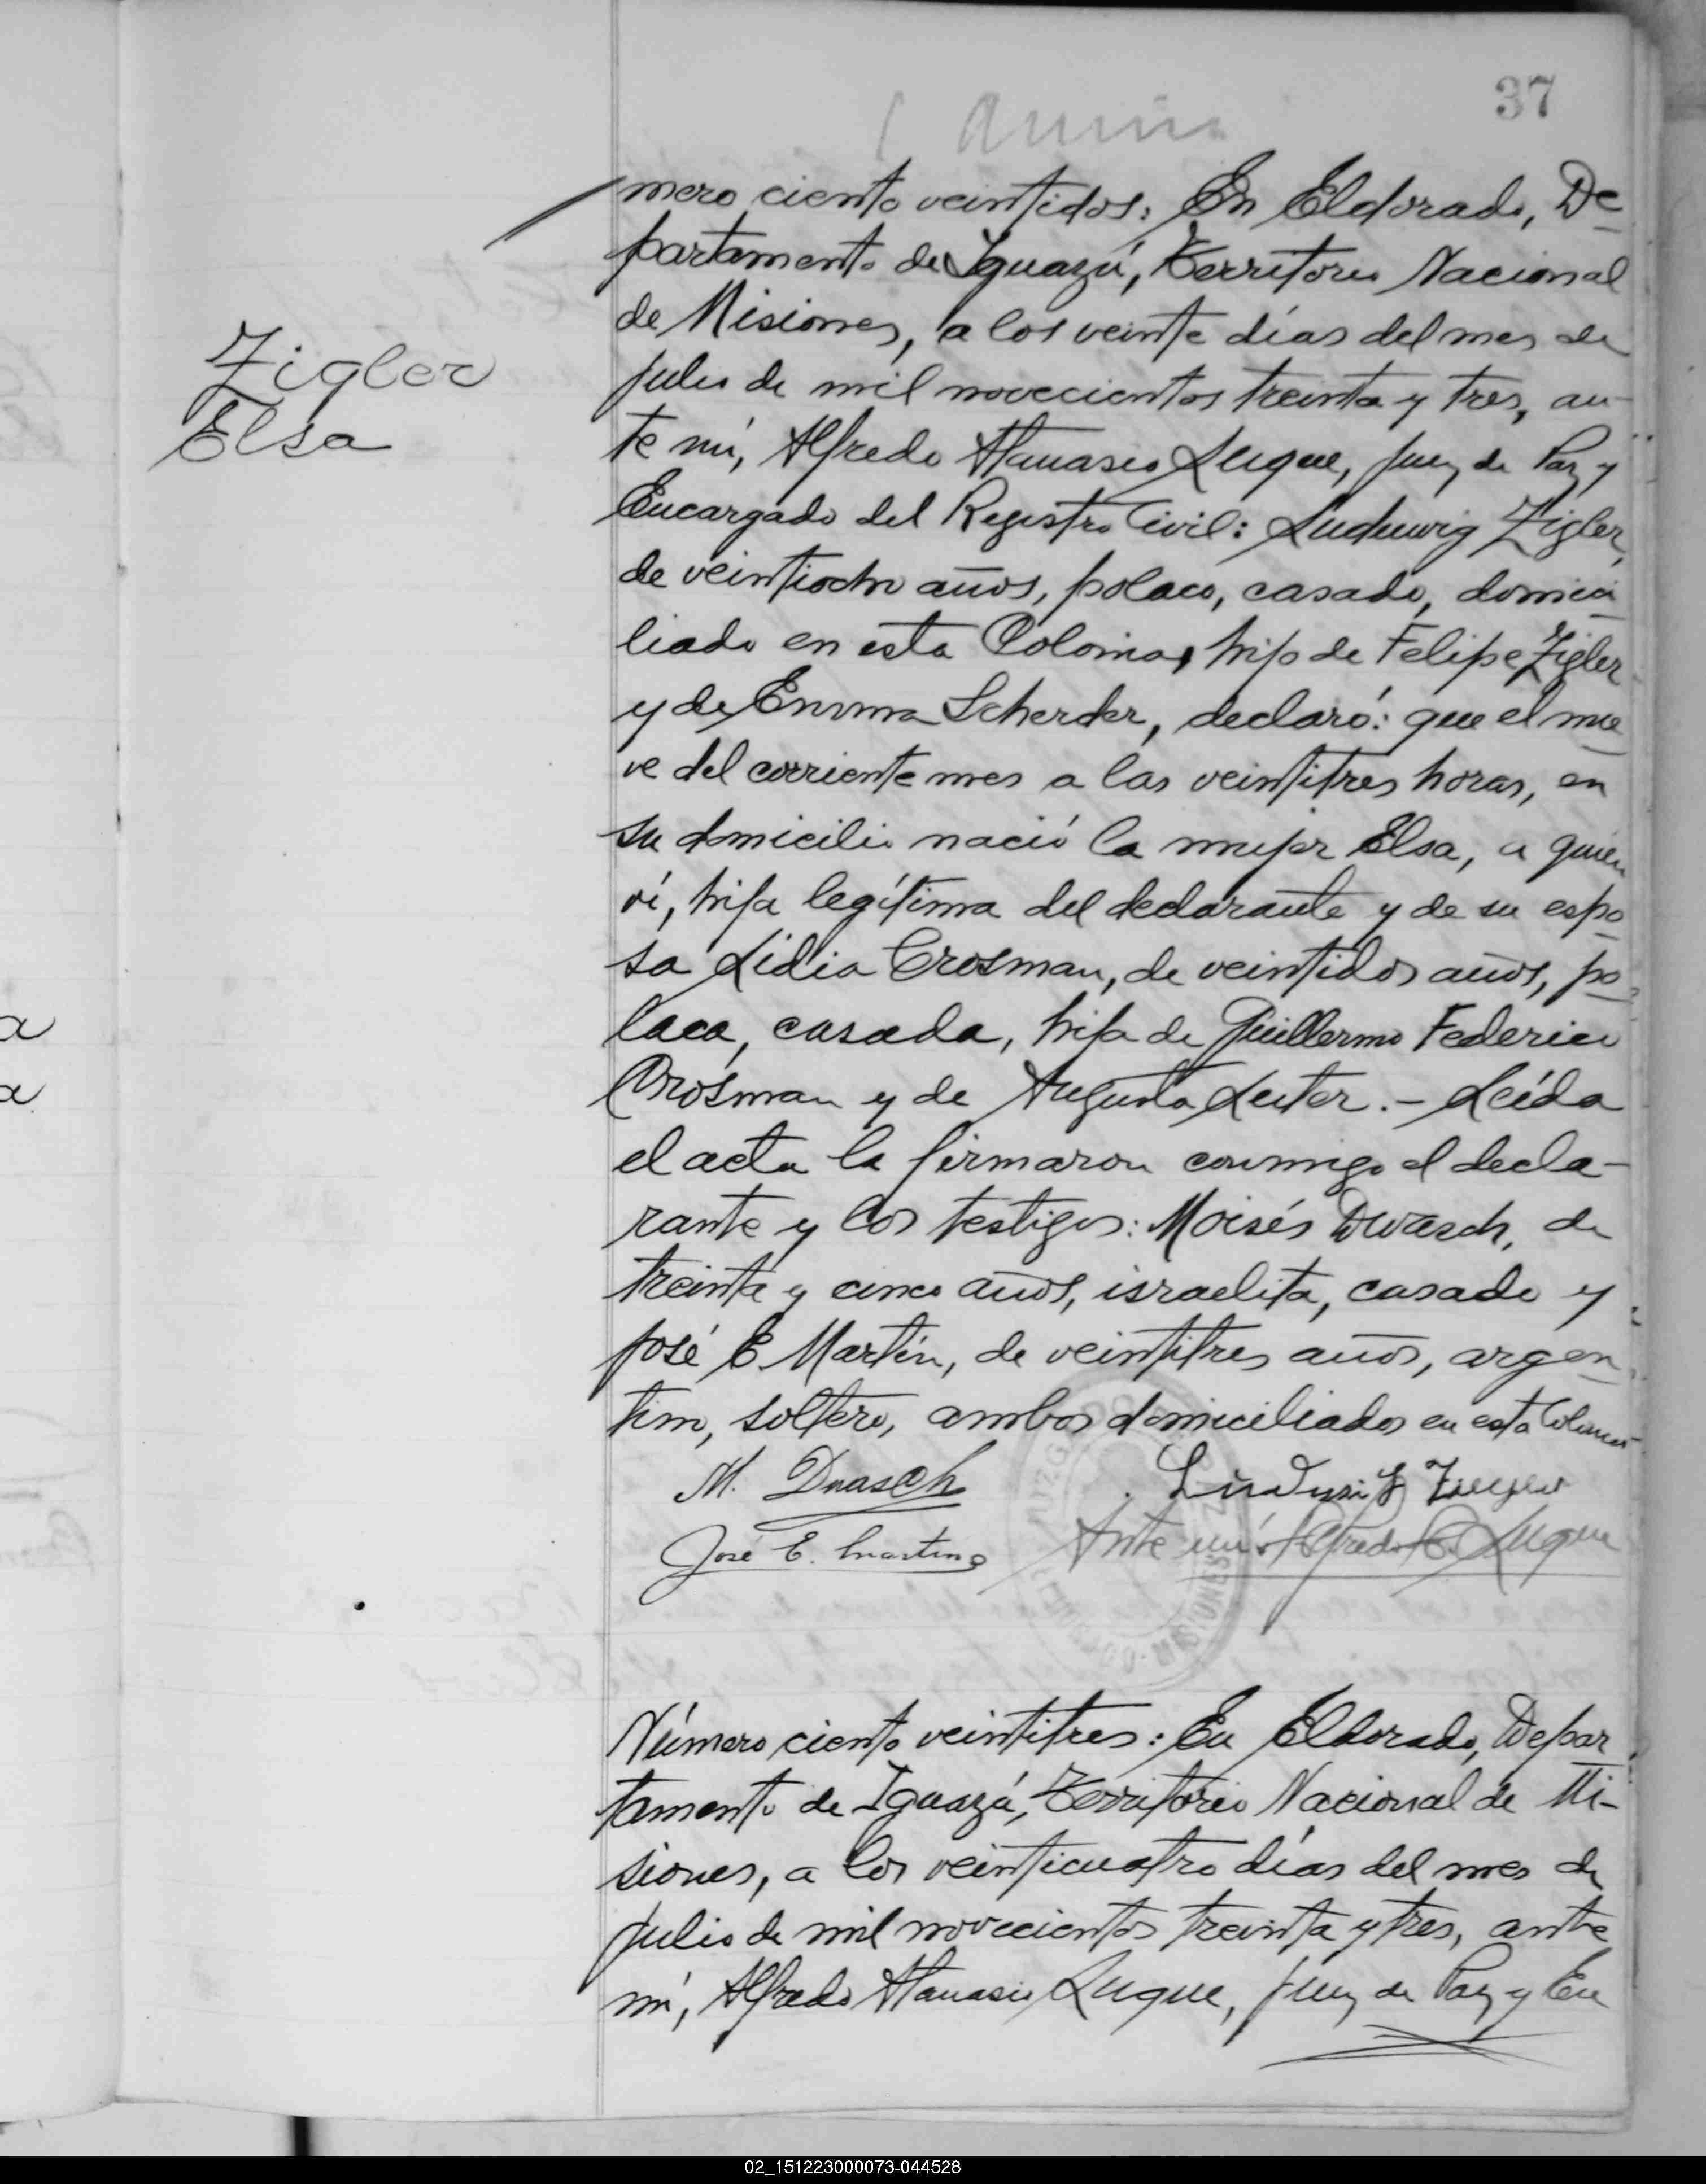 37
mero ciento veintidos: En Eldorado, De
partamento de Iguazú, Territorio Nacional
de Misiones, a los veinte días del mes de
julio de mil novecientos treinta y tres, an-
te mí, Alfredo Atanasio Luque, Juez de Paz y
Encargado del Registro Civil: Ludwig Zigler,
de veintiocho años, polaco, casado, domici
liado en esta Colonia, hijo de Felipe Zigler
y de Emma Scherder, declaró: que el nue
ve del corriente mes a las veintitres horas, en
su domicilio nació la mujer Elsa, a quien
ví, hija legítima del declarante y de su espo
sa Lidia Crosman, de veintidos años, po
laca, casada, hija de Guillermo Federico
Crosman y de Augusta Leiter.- Leída
el acta la firmaron conmigo el decla-
rante y los testigos: Moisés Dwasch, de
treinta y cinco años, israelita, casado y
José E Martín, de veintitres años, argen
tino, soltero, ambos domiciliados en esta Colonia-
M. Dwasch
José E. Martin
Ante mí: Alfredo A. Luque
Zigler
Elsa
Número ciento veintitres: En Eldorado, Depar
tamento de Iguazú, Territorio Nacional de Mi-
siones, a los veinticuatro días del mes de
julio de mil novecientos treinta y tres, ante
mí, Alfredo Atanasio Luque, Juez de Paz y En
02_151223000073-044528